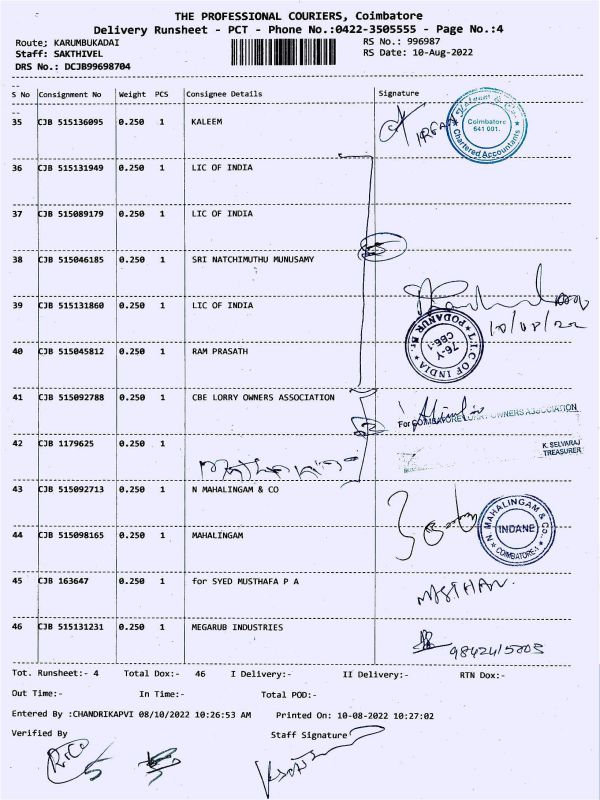 THE PROFESSIONAL COURIERS, Coimbatore
Delivery Runsheet - PCT - Phone No.:0422-3505555 - Page No.:4
Route; KARUMBUKADAI RS No.: 996987
Staff: SAKTHIVEL RS Date: 10-Aug-2022
DRS No.: DCJB99698704
S No Consignment No Weight PCS Consignee Details Signature
35 CJB 515136095 0.250 1 KALEEM
IRFAN
Kaleem & Co. Coimbatore 641 001. Chartered Accountants
36 CJB 515131949 0.250 1 LIC OF INDIA
37 CJB 515089179 0.250 1 LIC OF INDIA
38 CJB 515046185 0.250 1 SRI NATCHIMUTHU MUNUSAMY
39 CJB 515131860 0.250 1 LIC OF INDIA
10/08/22
L.I.C OF INDIA PODANUR Br. 76-Y CBE-1
40 CJB 515045812 0.250 1 RAM PRASATH
41 CJB 515092788 0.250 1 CBE LORRY OWNERS ASSOCIATION
For COIMBATORE LORRY OWNERS ASSOCIATION
42 CJB 1179625 0.250 1
K. SELVARAJ
TREASURER
43 CJB 515092713 0.250 1 N MAHALINGAM & CO
N. MAHALINGAM & Co. INDANE COIMBATORE-1
44 CJB 515098165 0.250 1 MAHALINGAM
45 CJB 163647 0.250 1 for SYED MUSTHAFA P A
MASTHAN.
46 CJB 515131231 0.250 1 MEGARUB INDUSTRIES
9842415003
Tot. Runsheet:- 4 Total Dox:- 46 I Delivery:- II Delivery:- RTN Dox:-
Out Time:- In Time:- Total POD:-
Entered By :CHANDRIKAPVI 08/10/2022 10:26:53 AM Printed On: 10-08-2022 10:27:02
Verified By Staff Signature